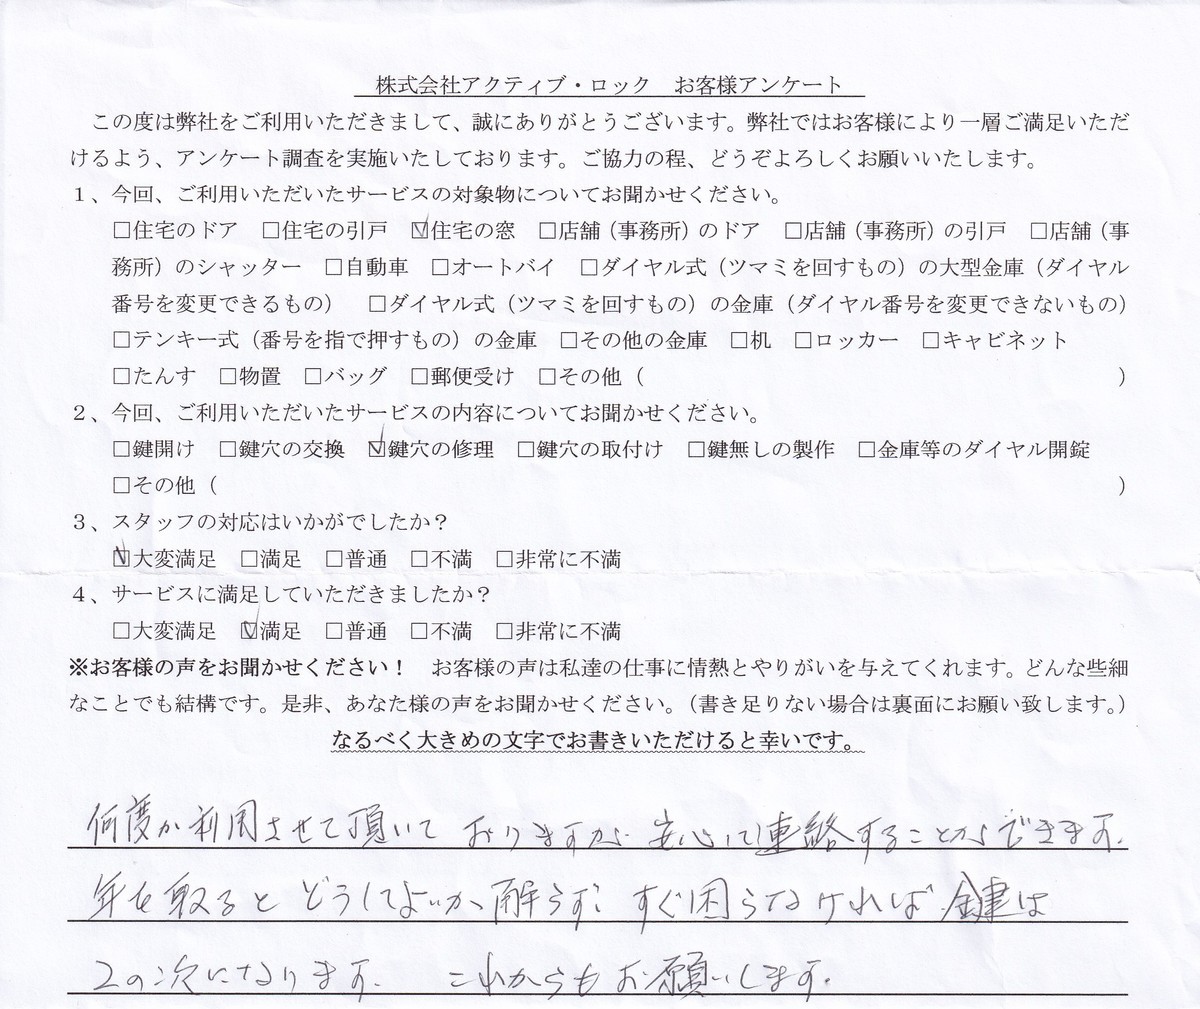 株式会社アクティブ・ロック　お客様アンケート
この度は弊社をご利用いただきまして、誠にありがとうございます。弊社ではお客様により一層ご満足いただ
けるよう、アンケート調査を実施いたしております。ご協力の程、どうぞよろしくお願いいたします。
１、今回、ご利用いただいたサービスの対象物についてお聞かせください。
□住宅のドア　□住宅の引戸　☑住宅の窓　□店舗（事務所）のドア　□店舗（事務所）の引戸　□店舗（事
務所）のシャッター　□自動車　□オートバイ　□ダイヤル式（ツマミを回すもの）の大型金庫（ダイヤル
番号を変更できるもの）　□ダイヤル式（ツマミを回すもの）の金庫（ダイヤル番号を変更できないもの）
□テンキー式（番号を指で押すもの）の金庫　□その他の金庫　□机　□ロッカー　□キャビネット
□たんす　□物置　□バッグ　□郵便受け　□その他（　　　　　　　　　　）
２、今回、ご利用いただいたサービスの内容についてお聞かせください。
□鍵開け　□鍵穴の交換　☑鍵穴の修理　□鍵穴の取付け　□鍵無しの製作　□金庫等のダイヤル開錠
□その他（　　　　　　　　　　）
３、スタッフの対応はいかがでしたか？
☑大変満足　□満足　□普通　□不満　□非常に不満
４、サービスに満足していただきましたか？
□大変満足　☑満足　□普通　□不満　□非常に不満
※お客様の声をお聞かせください！　お客様の声は私達の仕事に情熱とやりがいを与えてくれます。どんな些細
なことでも結構です。是非、あなた様の声をお聞かせください。（書き足りない場合は裏面にお願い致します。）
なるべく大きめの文字でお書きいただけると幸いです。
何度か利用させて頂いて おりますが 安心して連絡することができます.
年を取ると どうしてよいか 解らず すぐ困らなければ 鍵は
２の次になります. これからもお願いします.